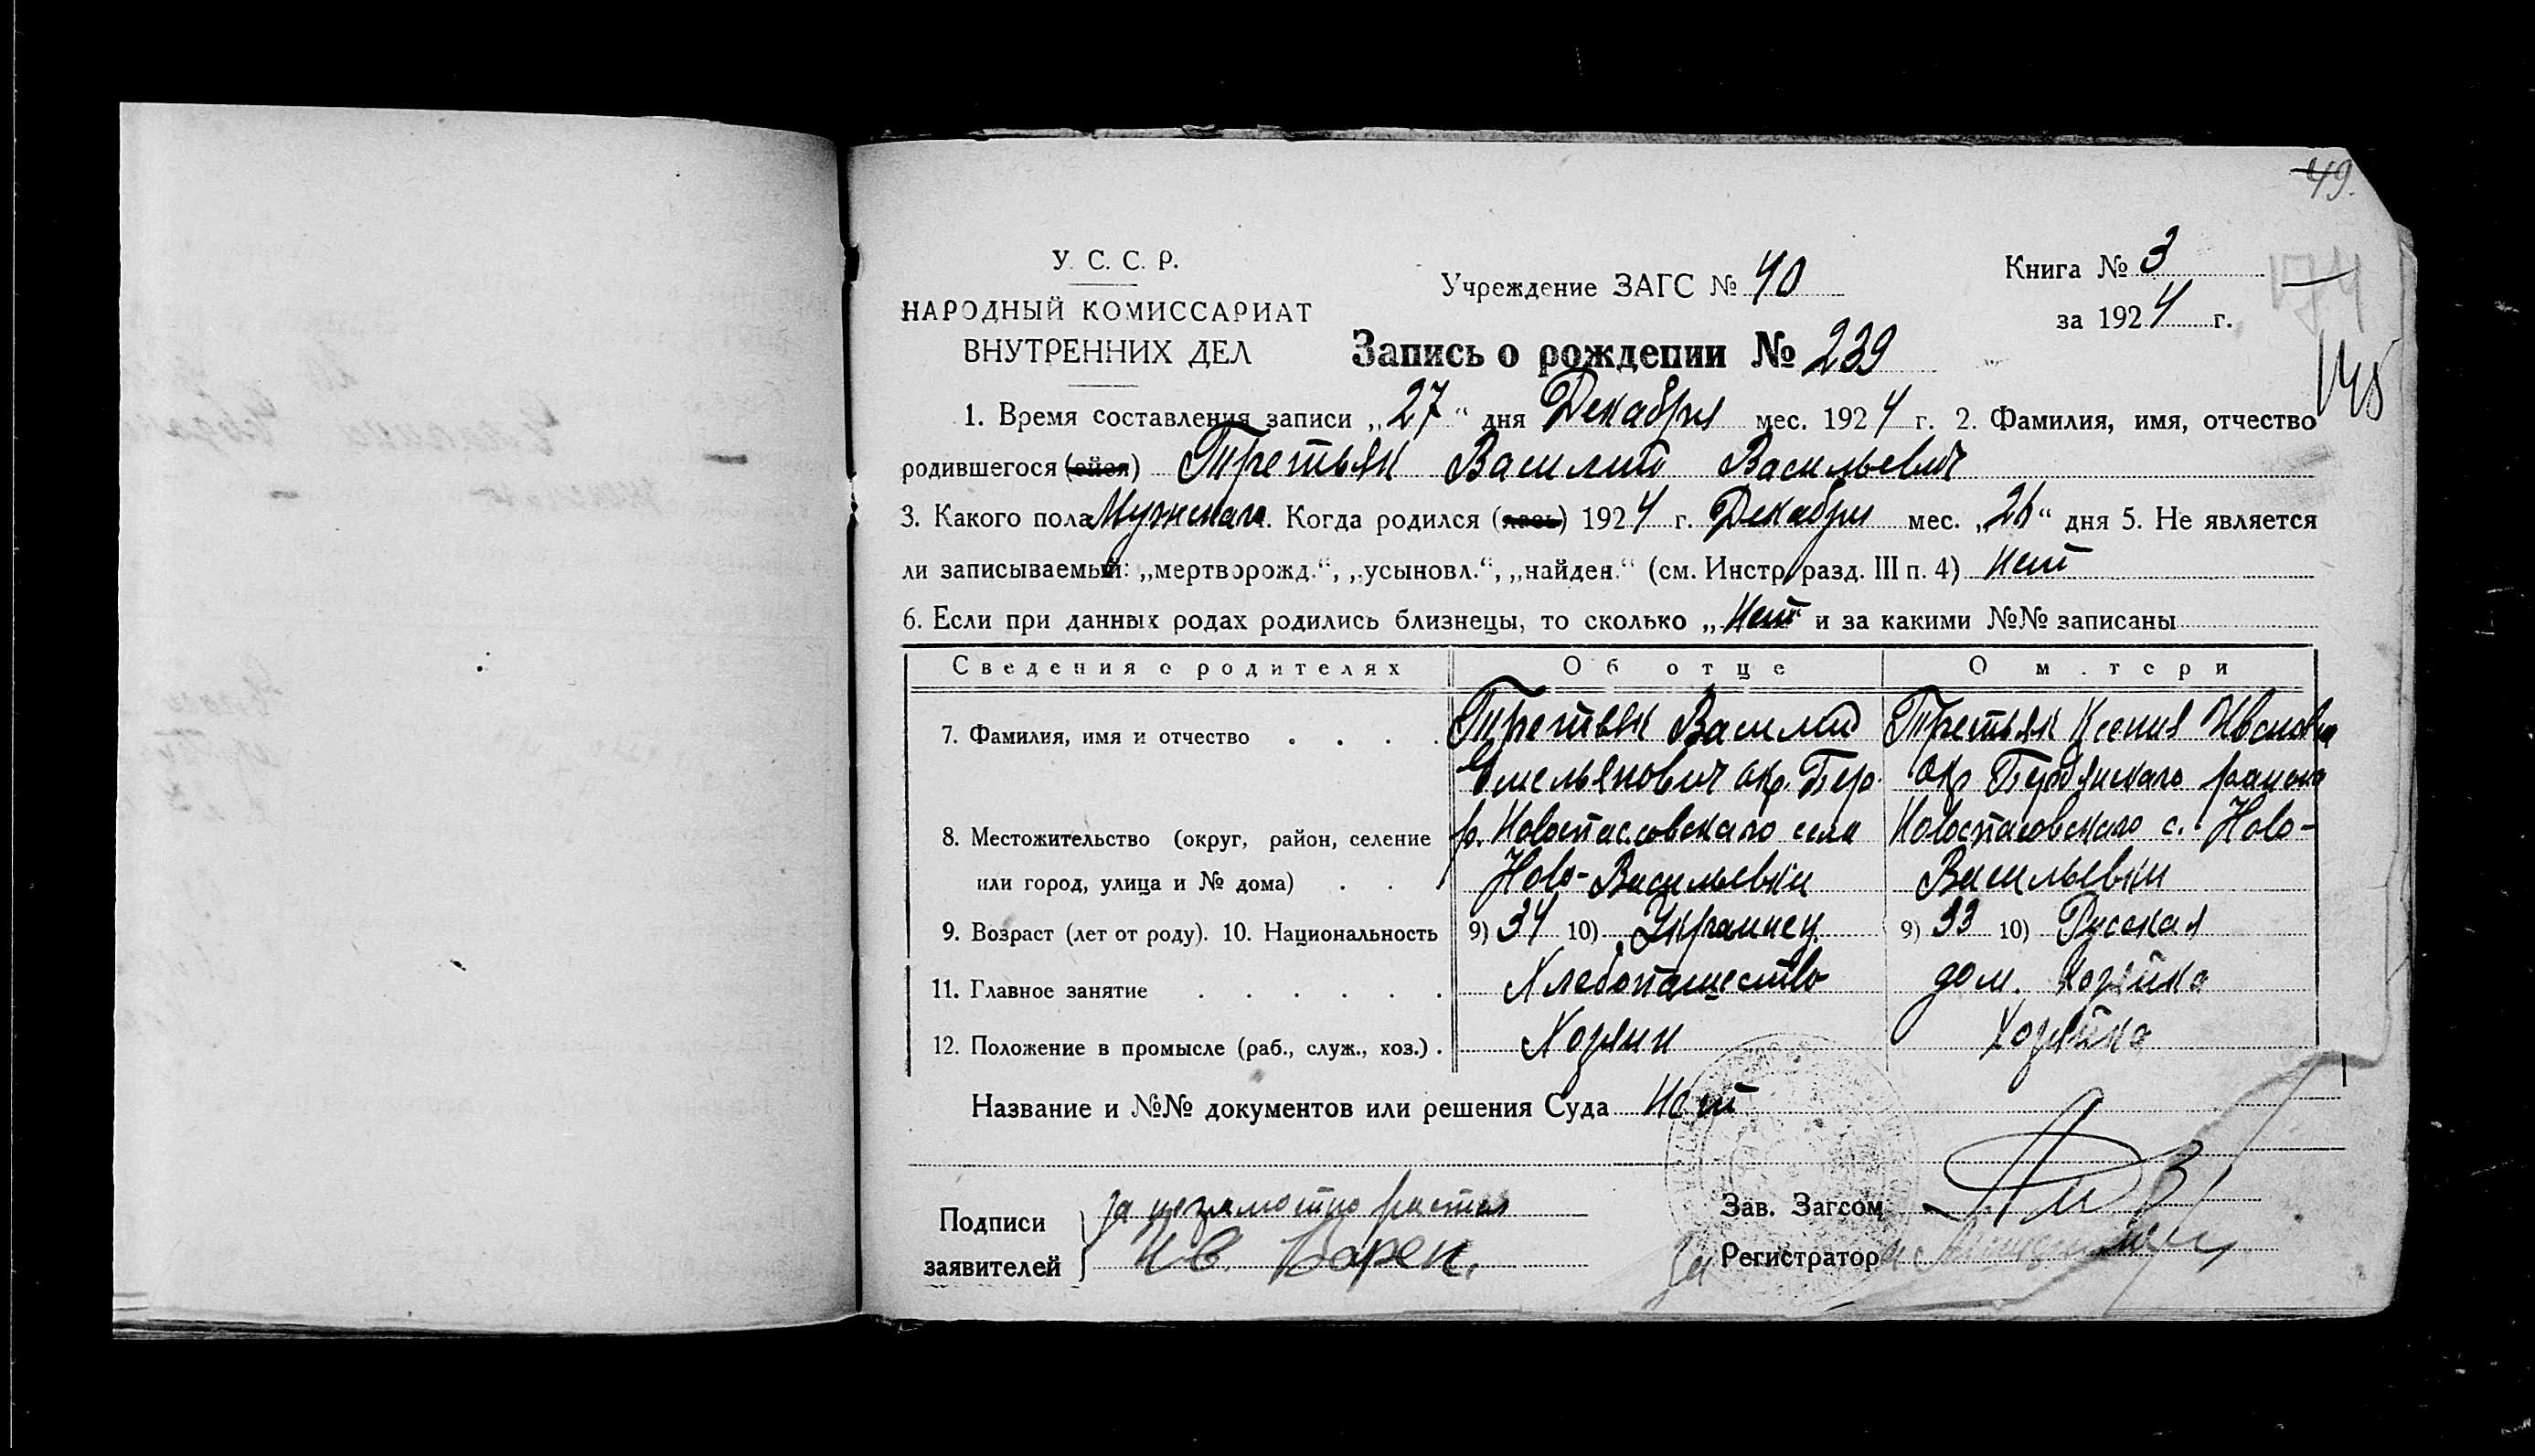 49.
У. С. С. Р.
НАРОДНЫЙ КОМИССАРИАТ
ВНУТРЕННИХ ДЕЛ
Учреждение ЗАГС № 40
Книга № 3
за 1924 г.
174
145
Запись о рождении № 239
1. Время составления записи „27“ дня Декабря мес. 1924 г. 2. Фамилия, имя, отчество
родившегося (ейся) Третьяк Василий Васильевич
3. Какого пола Мужского 4. Когда родился (лась) 1924 г. Декабря мес. „26“ дня 5. Не является
ли записываемый: „мертворожд.“, „усыновл.“, „найден.“ (см. Инстр. разд. III п. 4) Нет
6. Если при данных родах родились близнецы, то сколько „Нет“ и за какими №№ записаны
Сведения о родителях Об отце О м тери
7. Фамилия, имя и отчество Третьяк Василий Третьяк Ксения Ивановна
Емельянович окр. Бер. окр Бердянскаго района
8. Местожительство (округ, район, селение р. Новоспасовскаго села Новоспасовскаго с. Ново-
или город, улица и № дома) Ново-Васильевки Васильевки
9. Возраст (лет от роду). 10. Национальность 9) 34 10) Украинец 9) 33 10) Русская
11. Главное занятие Хлебопашество дом. хозяйка
12. Положение в промысле (раб., служ., хоз.) Хозяин Хозяйка
Название и №№ документов или решения Суда Нет
Подписи
заявителей
за
Ив.
Зав. Загсом
За Регистратор